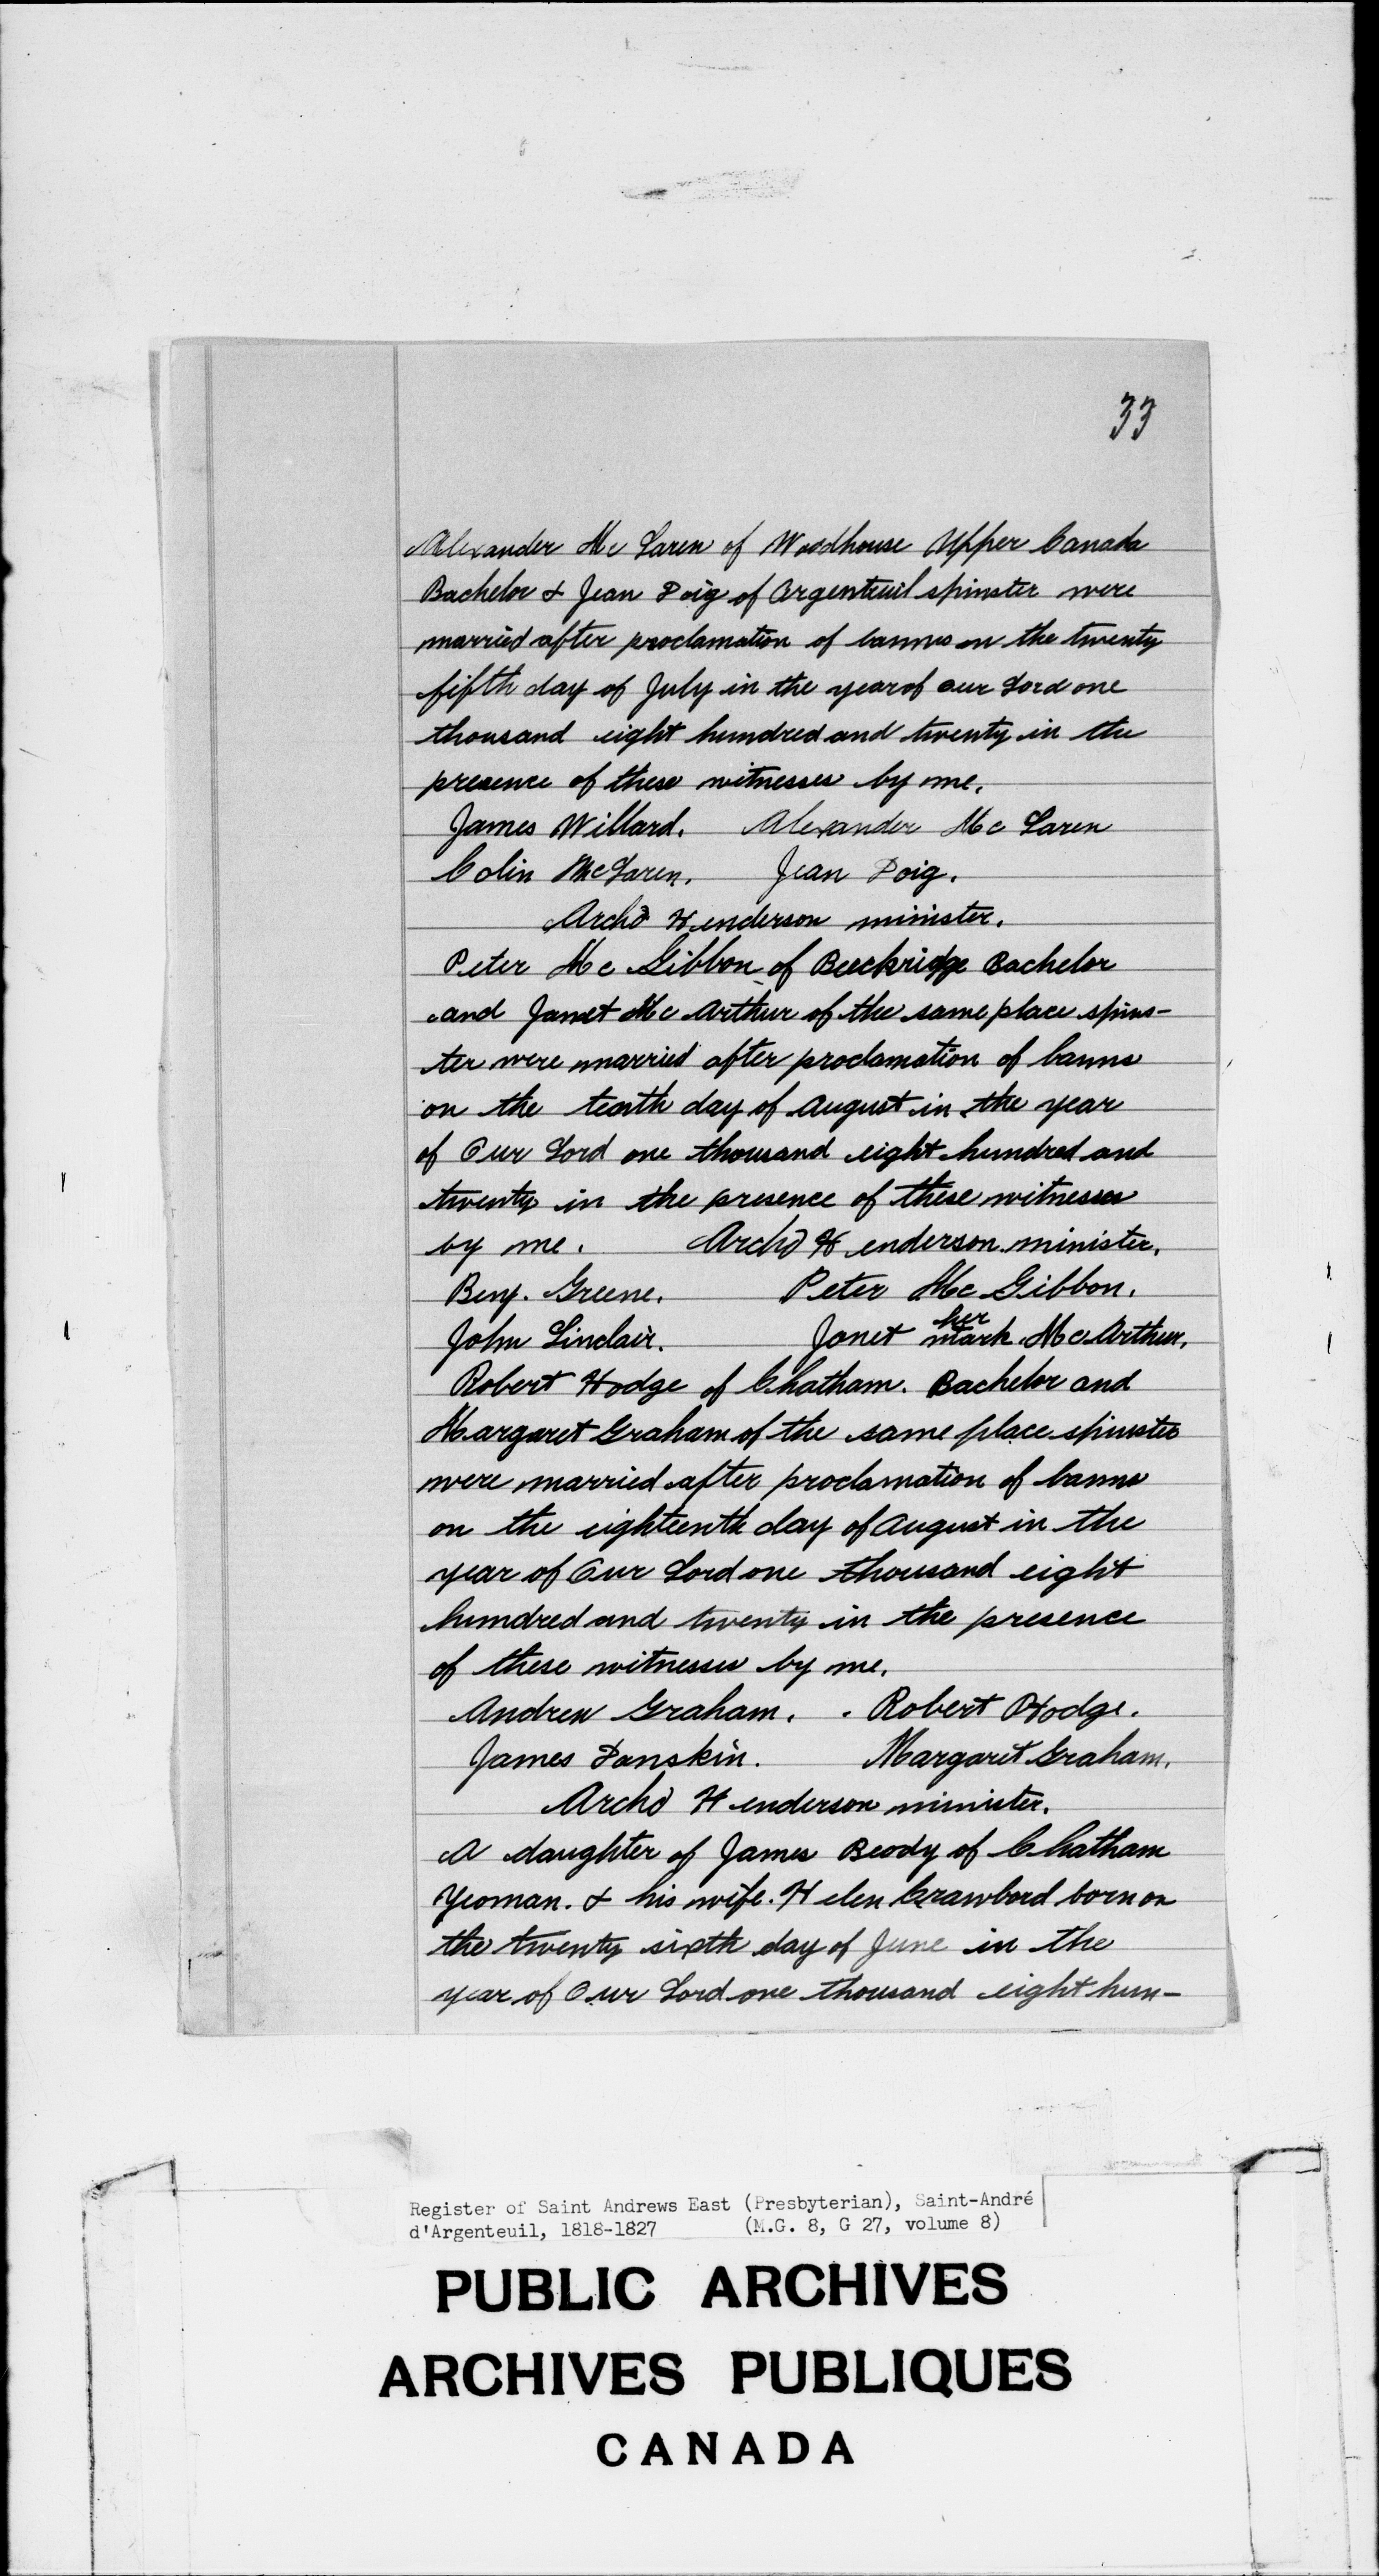 33
Alexander Mc Laren of Woodhouse Upper Canada
Bachelor & Jean Doig of Argenteuil spinster were
married after proclamation of banns on the twenty
fifth day of July in the year of our Lord one
thousand eight hundred and twenty in the
presence of these witnesses by me.
James Willard. Alexander Mc Laren
Colin McLaren. Jean Doig.
Archd Henderson minister.
Peter Mc Gibbon of Beeckridge Bachelor
and Janet Mc Arthur of the same place spins-
ter were married after proclamation of banns
on the tenth day of August in the year
of Our Lord one thousand eight hundred and
twenty in the presence of these witnesses
by me. Archd Henderson minister.
Benj. Greene. Peter Mc Gibbon.
John Sinclair. Janet her mark Mc Arthur.
Robert Hodge of Chatham. Bachelor and
Margaret Graham of the same place spinster
were married after proclamation of banns
on the eighteenth day of August in the
year of Our Lord one thousand eight
hundred and twenty in the presence
of these witnesses by me.
Andrew Graham. . Robert Hodge.
James Danskin. Margaret Graham.
Archd Henderson minister.
A daughter of James Beody of Chatham
Yeoman. & his wife. Helen Crawford born on
the twenty sixth day of June in the
year of Our Lord one thousand eight hun-
Register of Saint Andrews East (Presbyterian), Saint-André
d'Argenteuil, 1818-1827 (M.G. 8, G 27, volume 8)
PUBLIC ARCHIVES
ARCHIVES PUBLIQUES
CANADA